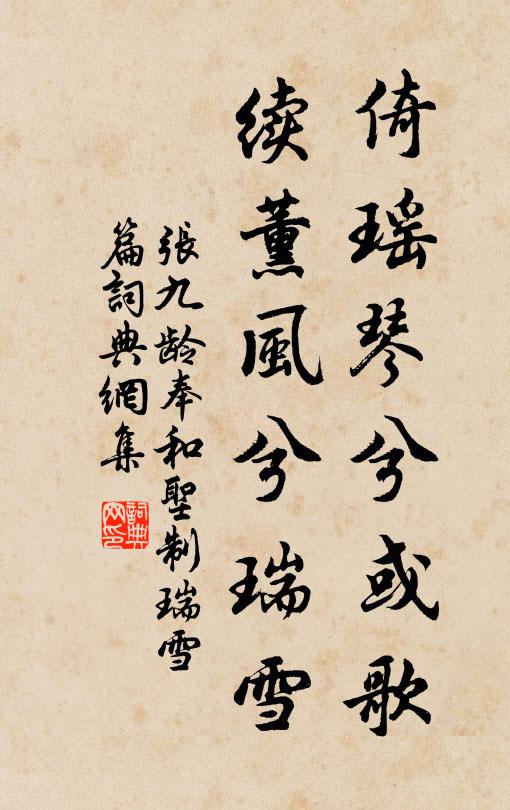 倚瑶琴兮或歌
续薰風兮瑞雪
張九龄奉和聖制瑞雪
篇詞典網集
詞典网印